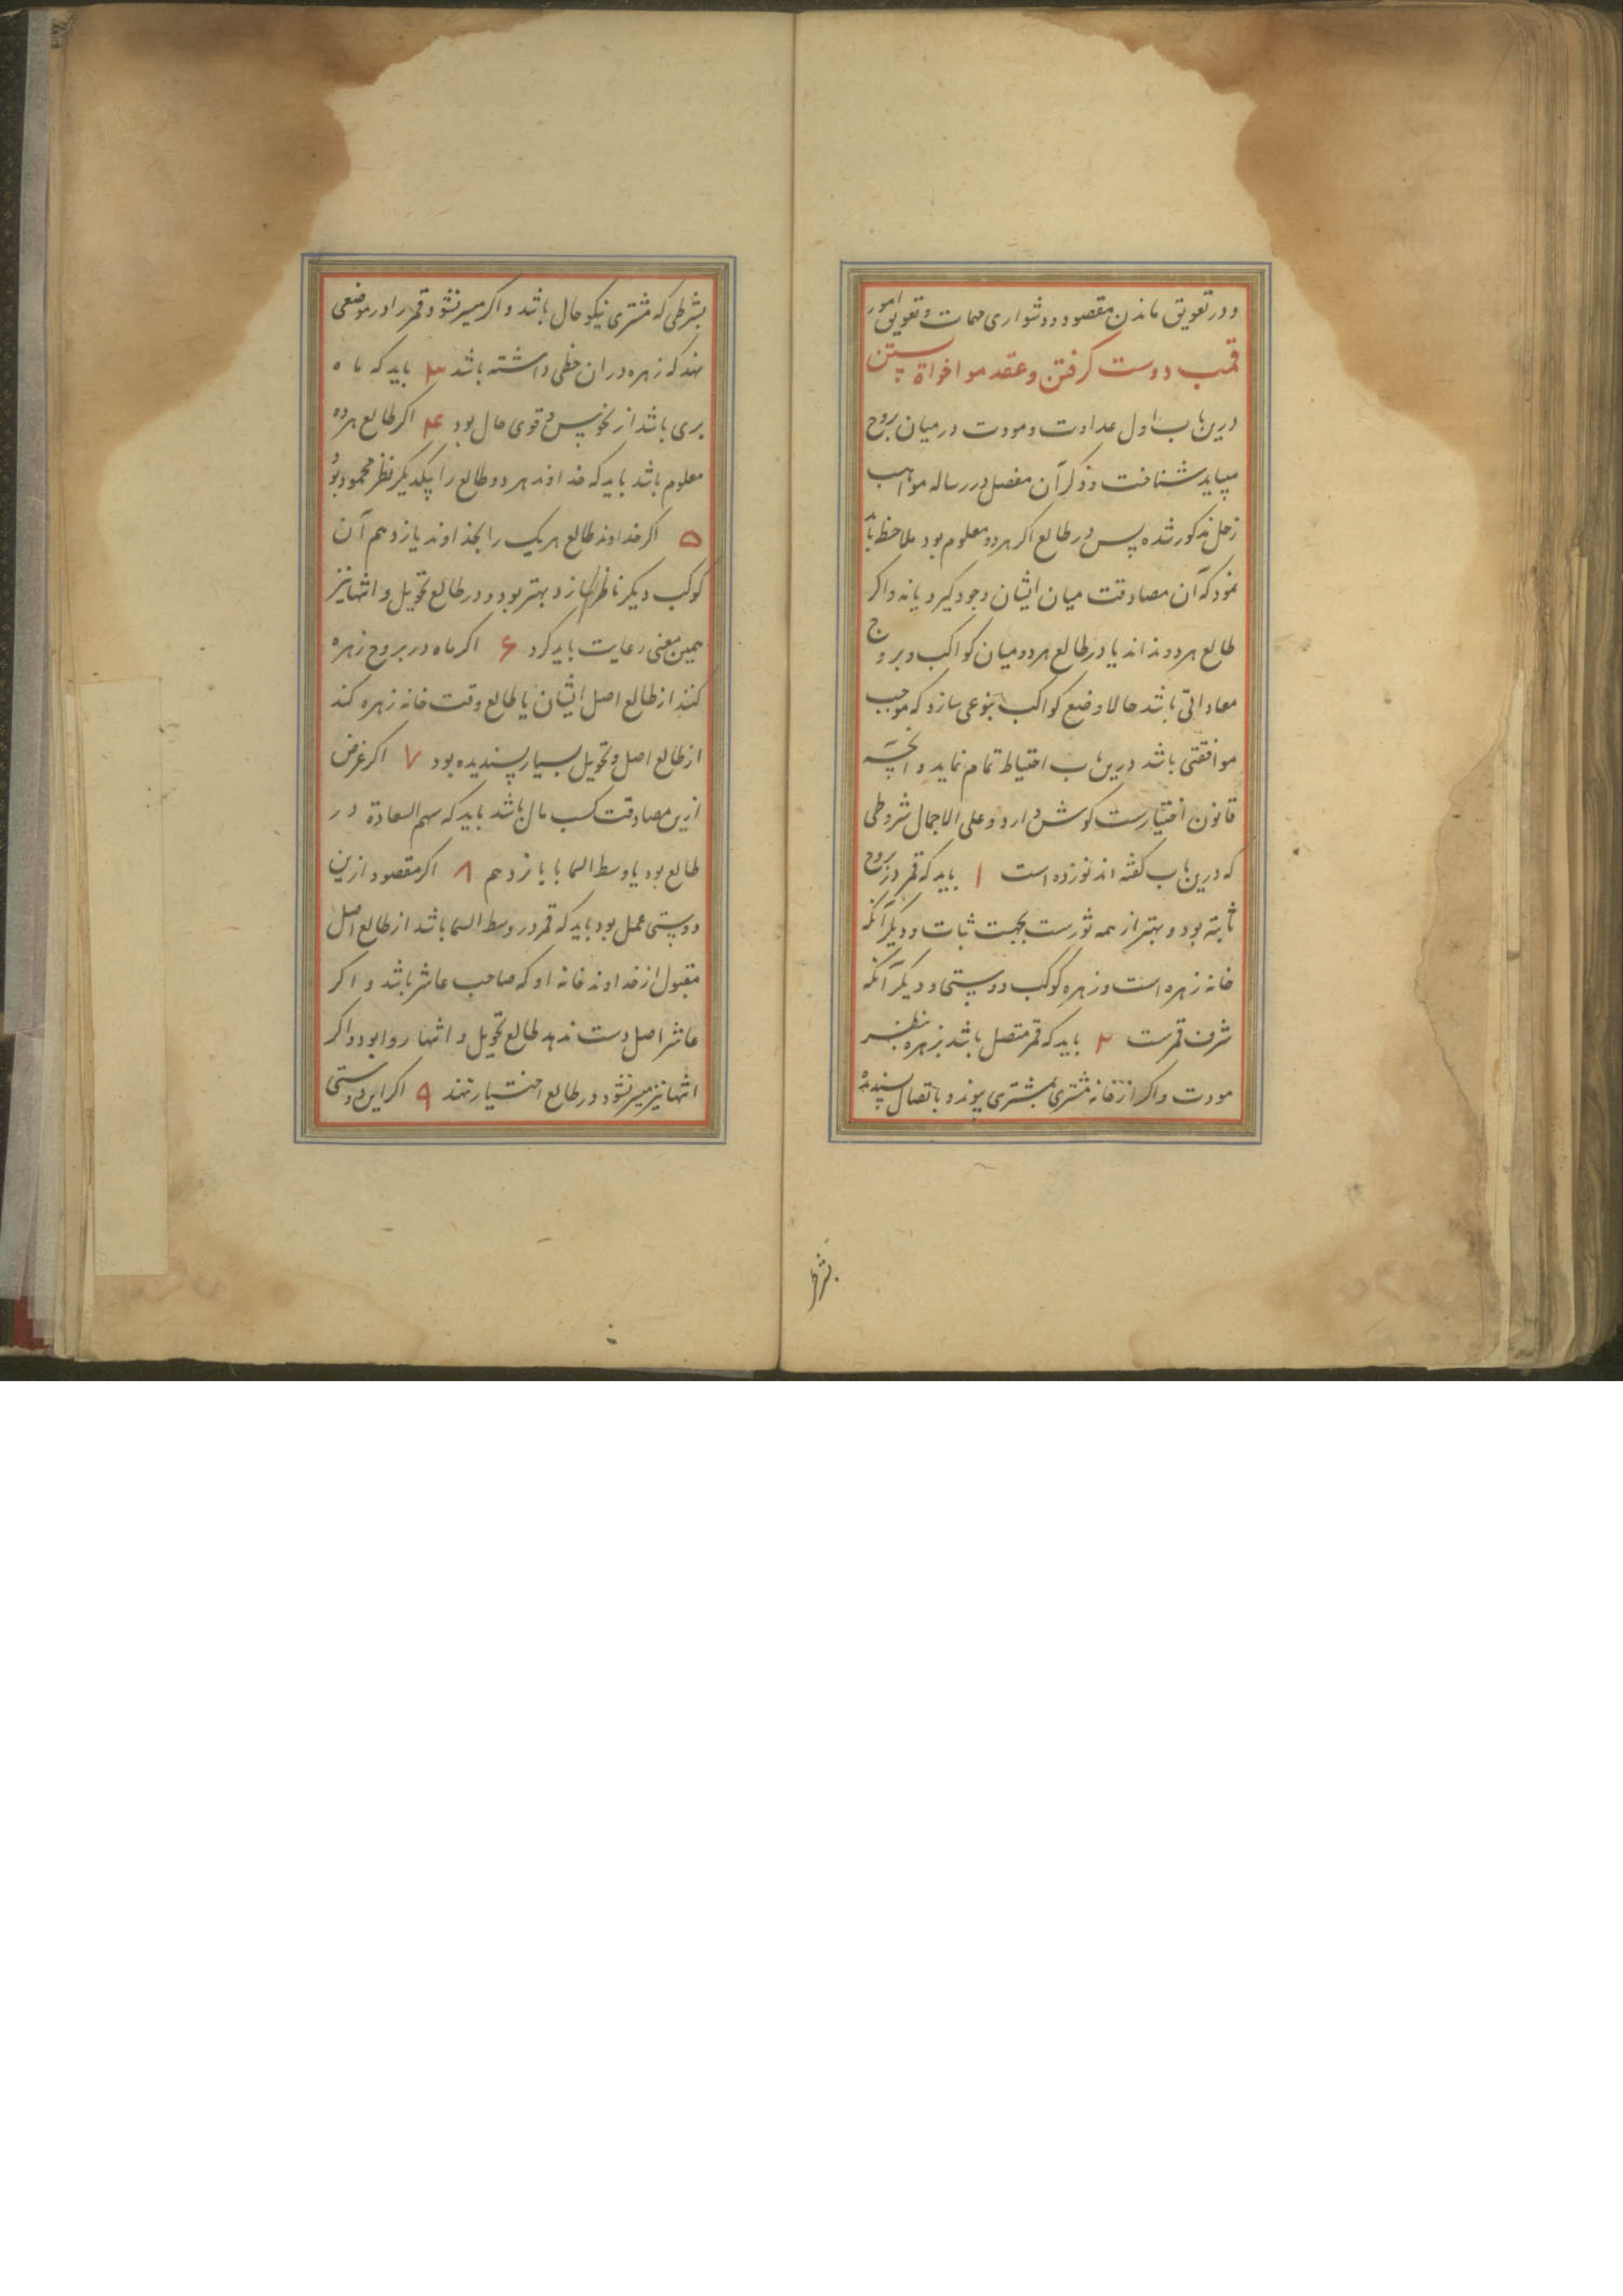 و در تعویق ماندن مقصود و دشواری مهمات و تعویق امور
قمب دوست کرفتن و عقد مواخواة بستن
درین باب اول عداوت و مودت در میان بروج
میباید شناخت و ذکر آن مفصل در رساله مواهب
زحل مذکور شده پس در طالع اکر هر دو معلوم بود ملاحظه باید
نمود که آن مصادقت میان ایشان وجود کیرد یا نه و اکر
طالع هر دو ندانند یا در طالع هر دو میان کواکب و بروج
معاداتی باشد حالا وضع کواکب بنوعی سازد که موجب
موافقتی باشد درین باب احتیاط تمام نماید و آنچه
قانون اختیارست کوش دارد و علی الاجمال شروطی
که درین باب کفته اند نوزده است ۱ باید که قمر در بروج
ثابته بود و بهتر از همه ثورست بجهت ثبات و دیکر آنکه
خانه زهره است و زهره کوکب دوستی و دیکر آنکه
شرف قمرست ۲ باید که قمر متصل باشد بزهره بنظر
مودت و اکر از خانه مشتری بمشتری پیوندد باتصال پسندیده
بشرط
بشرطی که مشتری نیکو حال باشد و اکر میسر نشود قمر را در موضعی
نهد که زهره در ان حظی داشته باشد ۳ باید که ماه
بری باشد از نحوس و قوی حال بود ۴ اکر طالع هر دو
معلوم باشد باید که خداوند هر دو طالع را بیکدیکر نظر محمود بود
۵ اکر خداوند طالع هر یک را بخداوند یازدهم آن
کوکب دیکر ناظر سازد بهتر بود و در طالع تحویل و انتها نیز
همین معنی رعایت باید کرد ۶ اکر ماه در بروج زهره
کنند از طالع اصل ایشان یا طالع وقت خانه زهره کند
از طالع اصل و تحویل بسیار پسندیده بود ۷ اکر غرض
ازین مصادقت کسب مال باشد باید که سهم السعادة در
طالع بود یا وسط السما یا یازدهم ۸ اکر مقصود ازین
دوستی عمل بود باید که قمر در وسط السما باشد از طالع اصل
مقبول از خداوند خانه او که صاحب عاشر باشد و اکر
عاشر اصل دست ندهد طالع تحویل و انتها روا بود و اکر
انتها نیز میسر نشود در طالع اختیار نهند ۹ اکر این دوستی